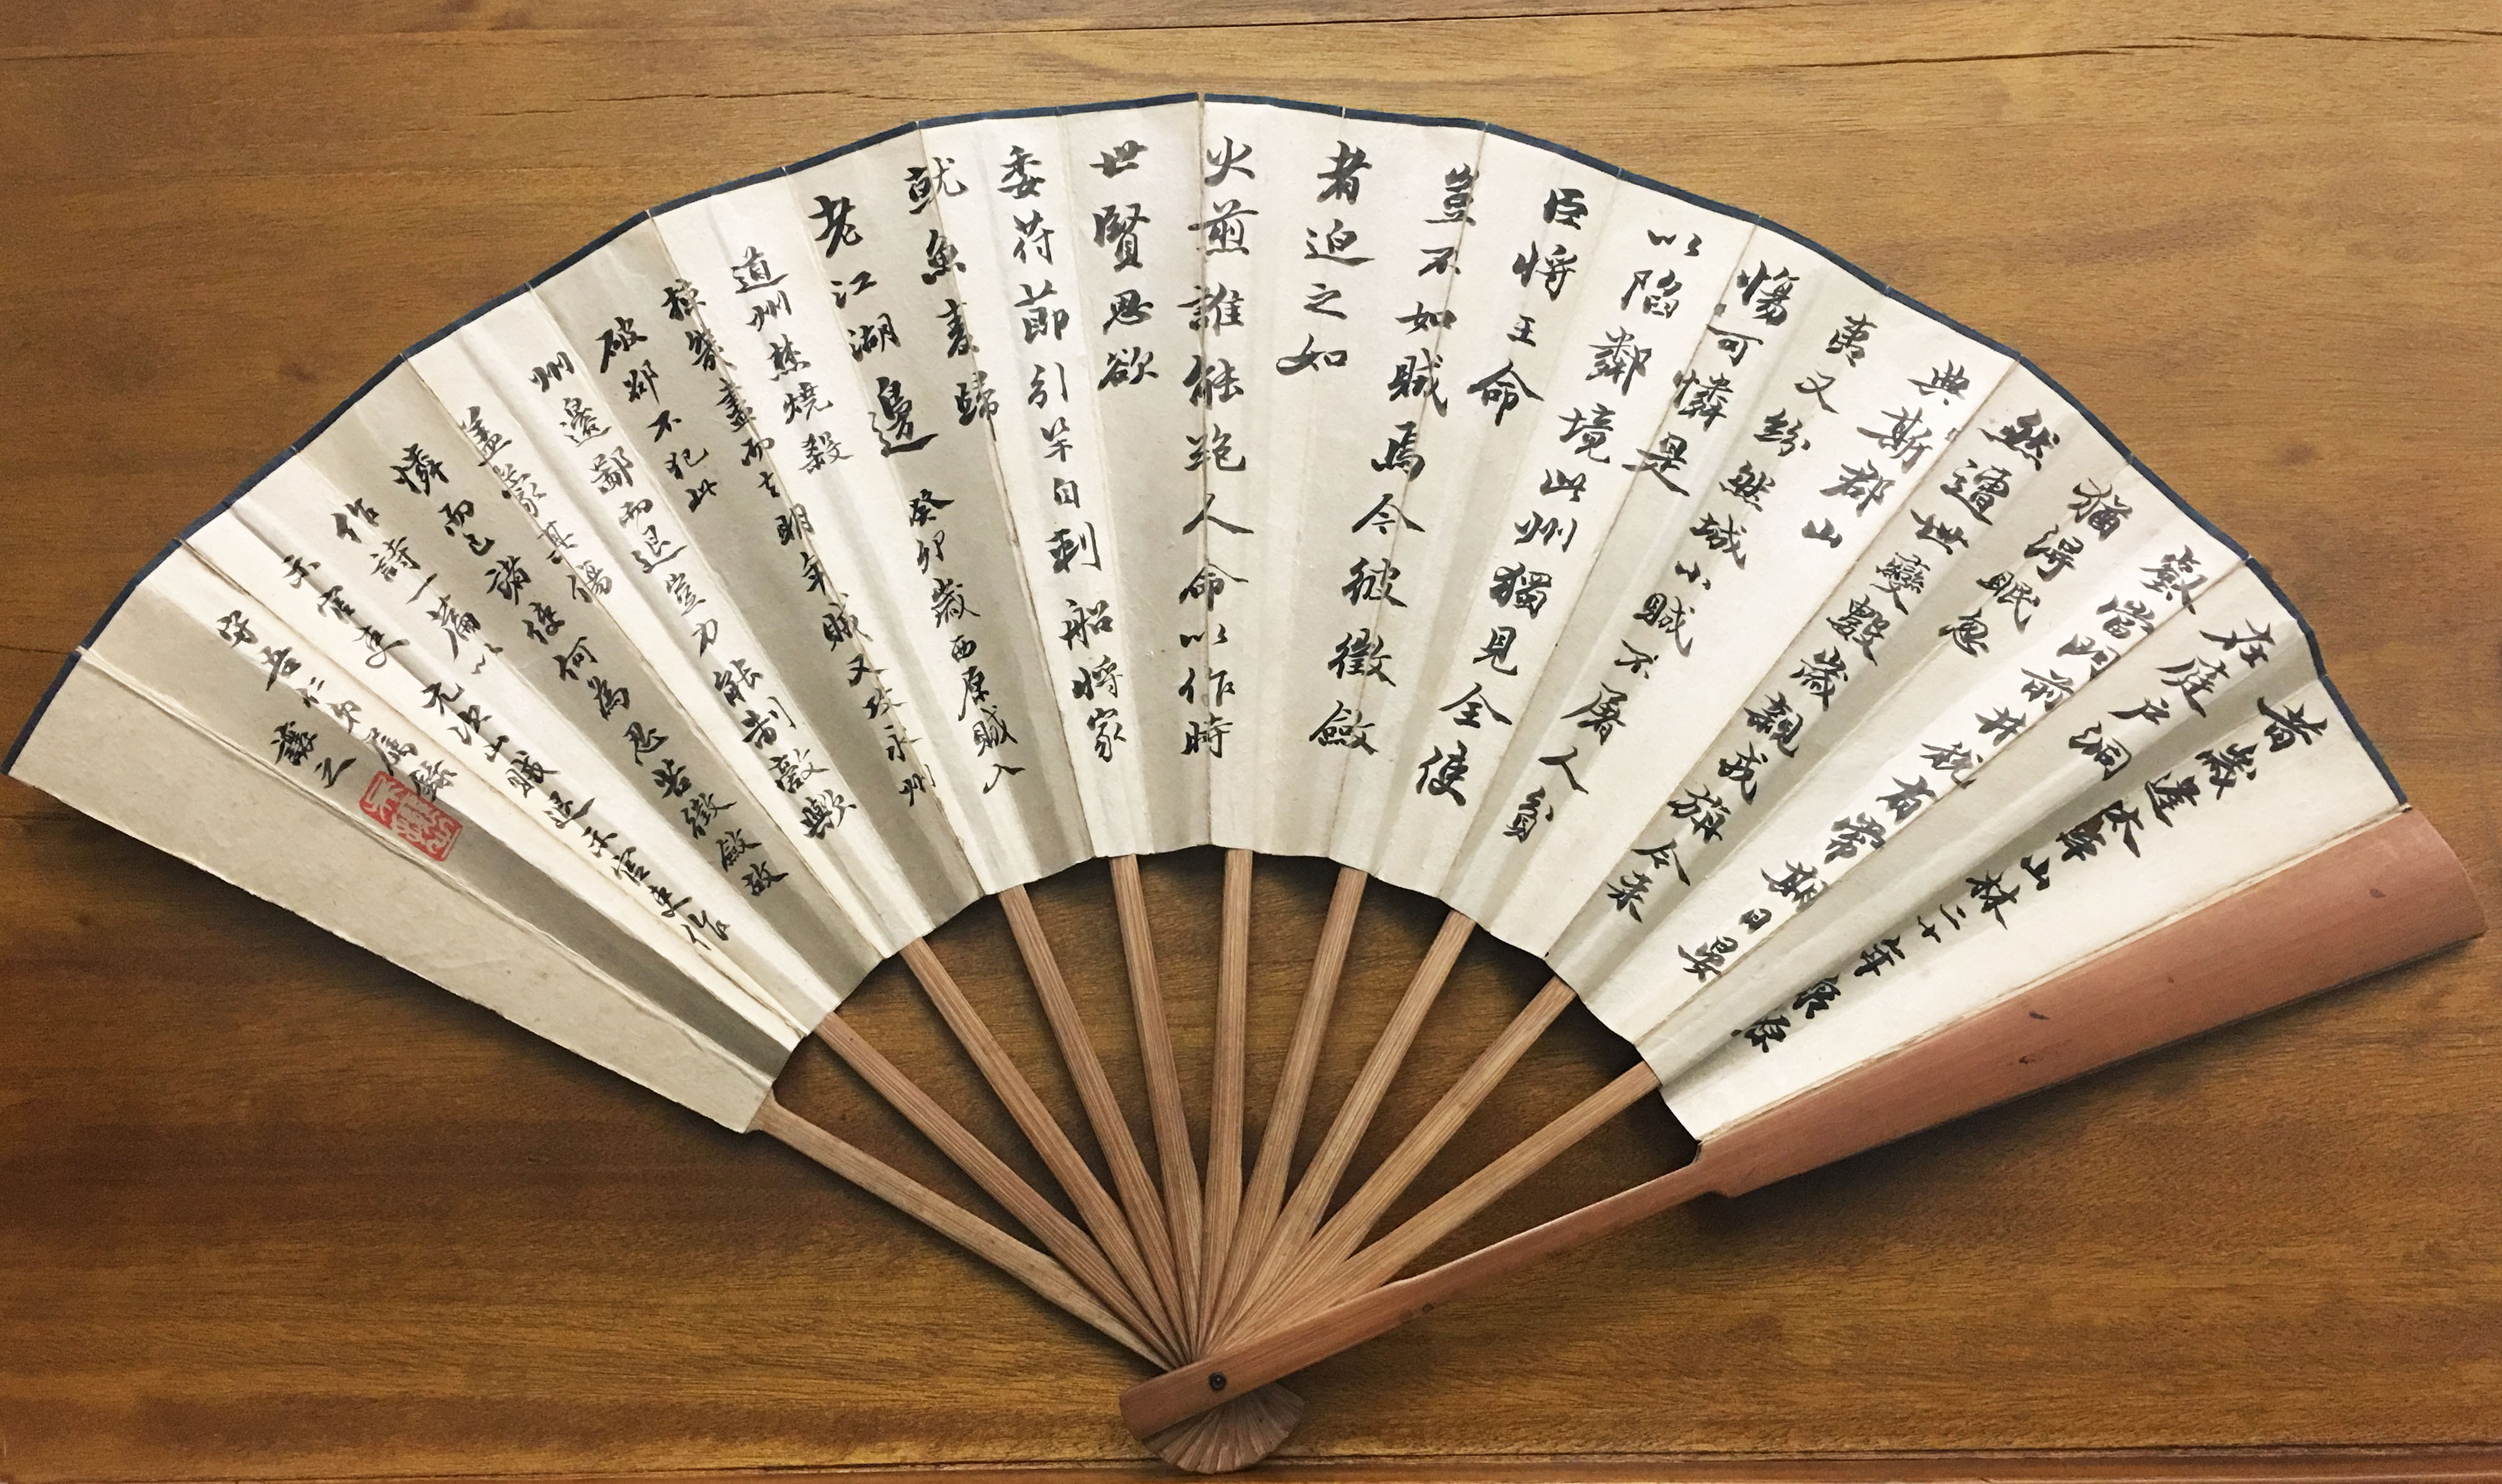 昔歲逢太平山林二十年泉源
在庭戶洞
壑當門前井稅有常期日晏
猶得眠忽
然遭世變數歲親戎旃今來
典斯郡山
夷又紛然城小賊不屠人貧
傷可憐是
以陷鄰境此州獨見全使
臣將王命
豈不如賊焉今彼徵斂
者迫之如
火煎誰能絕人命以作時
世賢思欲
委苻節引竿自刺船將家
就魚麥歸
老江湖邊 癸卯歲西原賊入
道州焚燒殺
掠幾盡而去明年賊又攻永州
破邵不犯此
州邊鄙而退豈力能制敵歟
蓋蒙其傷
憐而已諸使何為忍苦徵斂故
作詩一篇以
示官吏 元次山賊退示官吏作
守吾仁兄屬錄
讓之